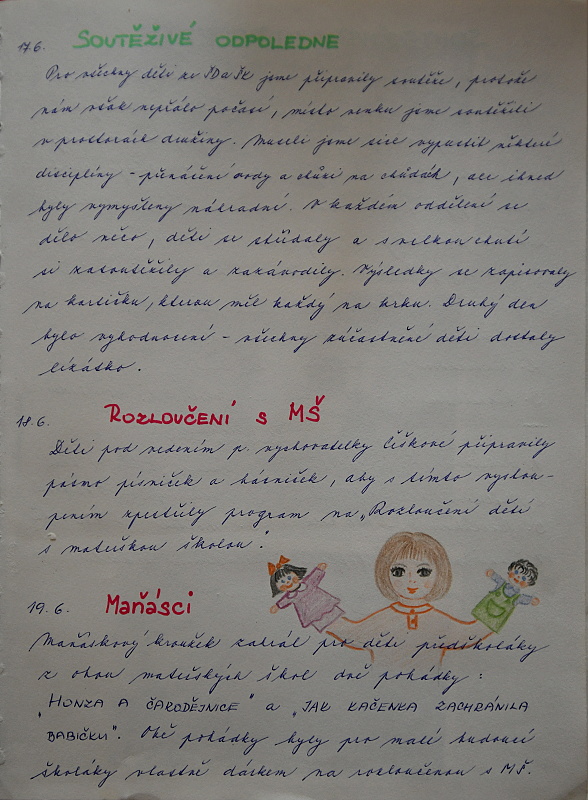 17.6. SOUTĚŽIVÉ ODPOLEDNE
Pro všechny děti ze ŠD a ŠK jsme připravily soutěže, protože
nám však nepřálo počasí, místo venku jsme soutěžili
v prostorách družiny. Museli jsme sice vypustit některé
disciplíny - přenášení vody a chůzi na chůdách, ale ihned
byly vymyšleny náhradní. V každém oddělení se
dělo něco, děti se střídaly a s velkou chutí
si zasoutěžily a zazávodily. Výsledky se zapisovaly
na kartičku, kterou měl každý na krku. Druhý den
bylo vyhodnocení - všechny zúčastněné děti dostaly
lízátko.
18.6. ROZLOUČENÍ S MŠ
Děti pod vedením p. vychovatelky Číškové připravily
pásmo písniček a básniček, aby s tímto vystou-
pením zpestřily program na „Rozloučení dětí
s mateřskou školou".
19.6. MAŇÁSCI
Maňáskový kroužek zahrál pro děti předškoláky
z obou mateřských škol dvě pohádky:
„HONZA A ČARODĚJNICE" a „JAK KAČENKA ZACHRÁNILA
BABIČKU". Obě pohádky byly pro malé budoucí
školáky vlastně dárkem na rozloučenou s MŠ.